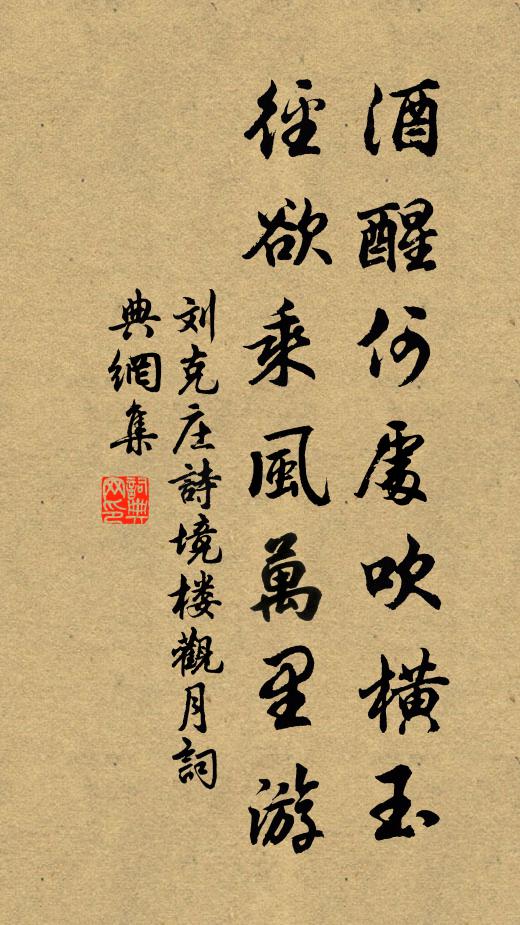 酒醒何處吹橫玉
徑欲乘風萬里游
刘克庄詩境楼觀月詞
典網集
詞典網印